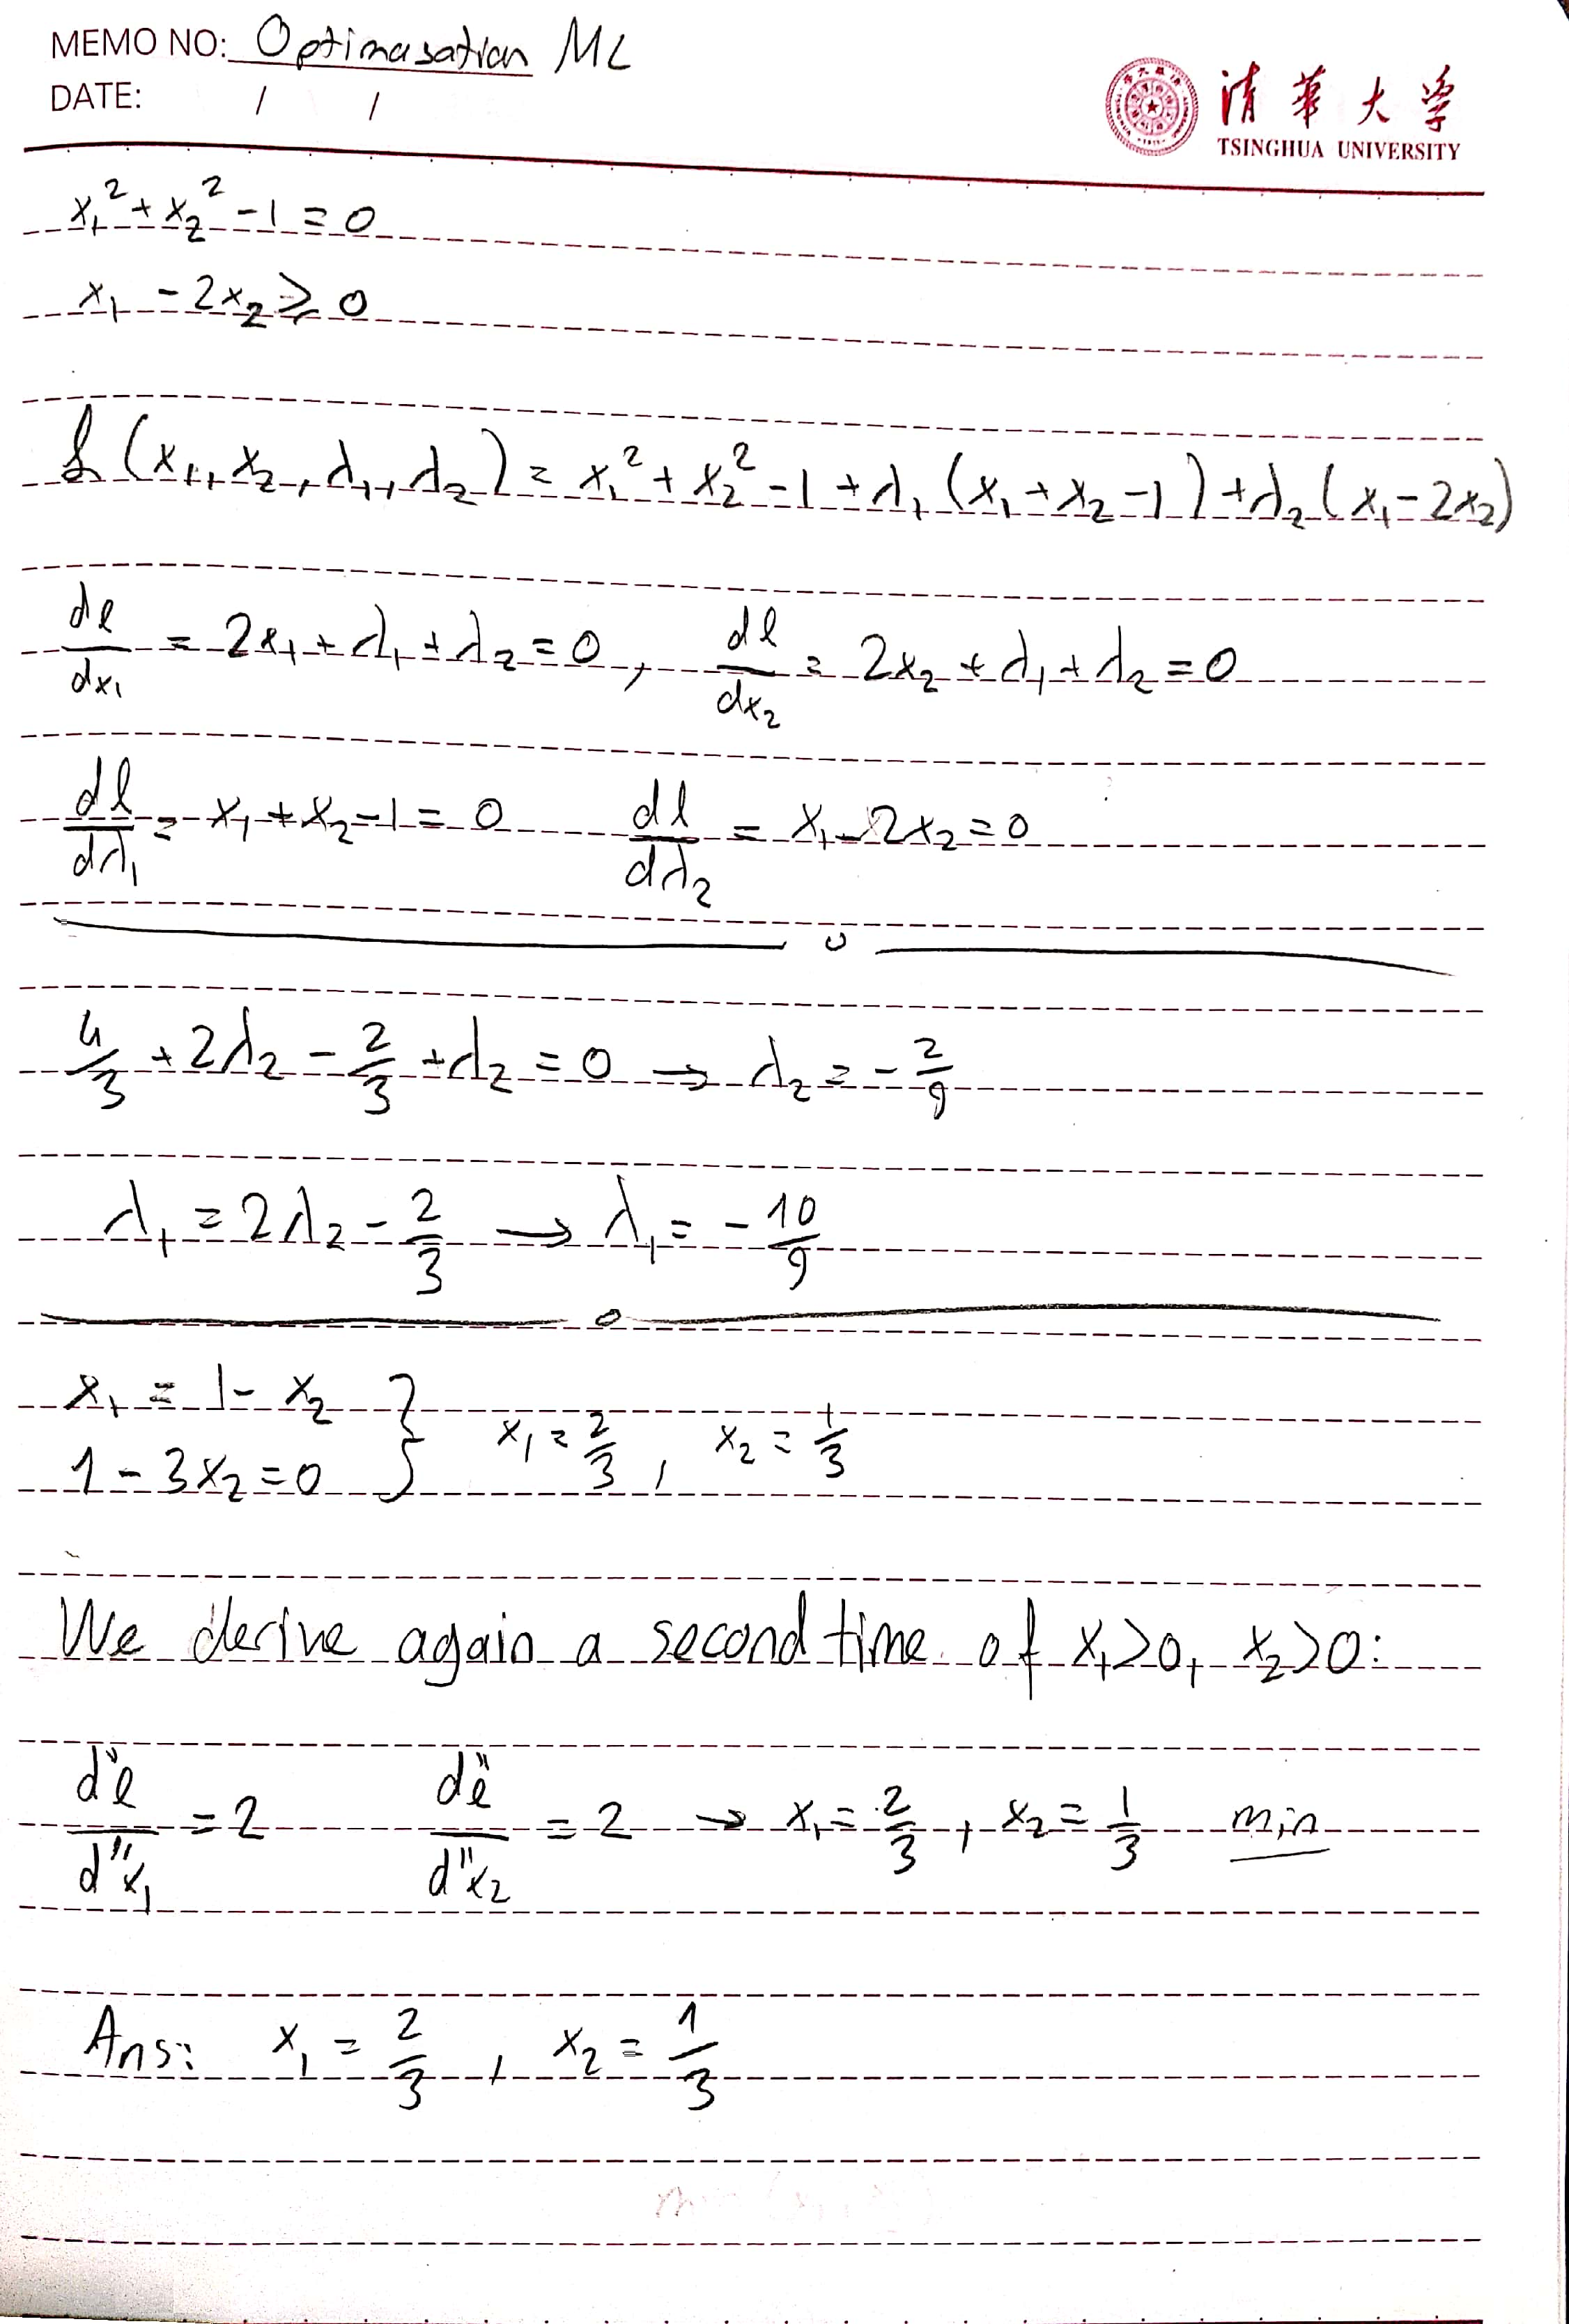 MEMO NO: Optimasation ML
DATE: / /
清華大学
TSINGHUA UNIVERSITY
x₁² + x₂² - 1 = 0
x₁ - 2x₂ ≥ 0
ℒ(x₁, x₂, λ₁, λ₂) = x₁² + x₂² - 1 + λ₁(x₁ + x₂ - 1) + λ₂(x₁ - 2x₂)
dℓ/dx₁ = 2x₁ + λ₁ + λ₂ = 0, dℓ/dx₂ = 2x₂ + λ₁ + λ₂ = 0
dℓ/dλ₁ = x₁ + x₂ - 1 = 0 dℓ/dλ₂ = x₁ - 2x₂ = 0
4/3 + 2λ₂ - 2/3 + λ₂ = 0 → λ₂ = - 2/9
λ₁ = 2λ₂ - 2/3 → λ₁ = - 10/9
x₁ = 1 - x₂
1 - 3x₂ = 0 } x₁ = 2/3, x₂ = 1/3
We derive again a second time of x₁>0, x₂>0:
d"ℓ/d"x₁ = 2 d"ℓ/d"x₂ = 2 → x₁ = 2/3, x₂ = 1/3 min
Ans: x₁ = 2/3, x₂ = 1/3